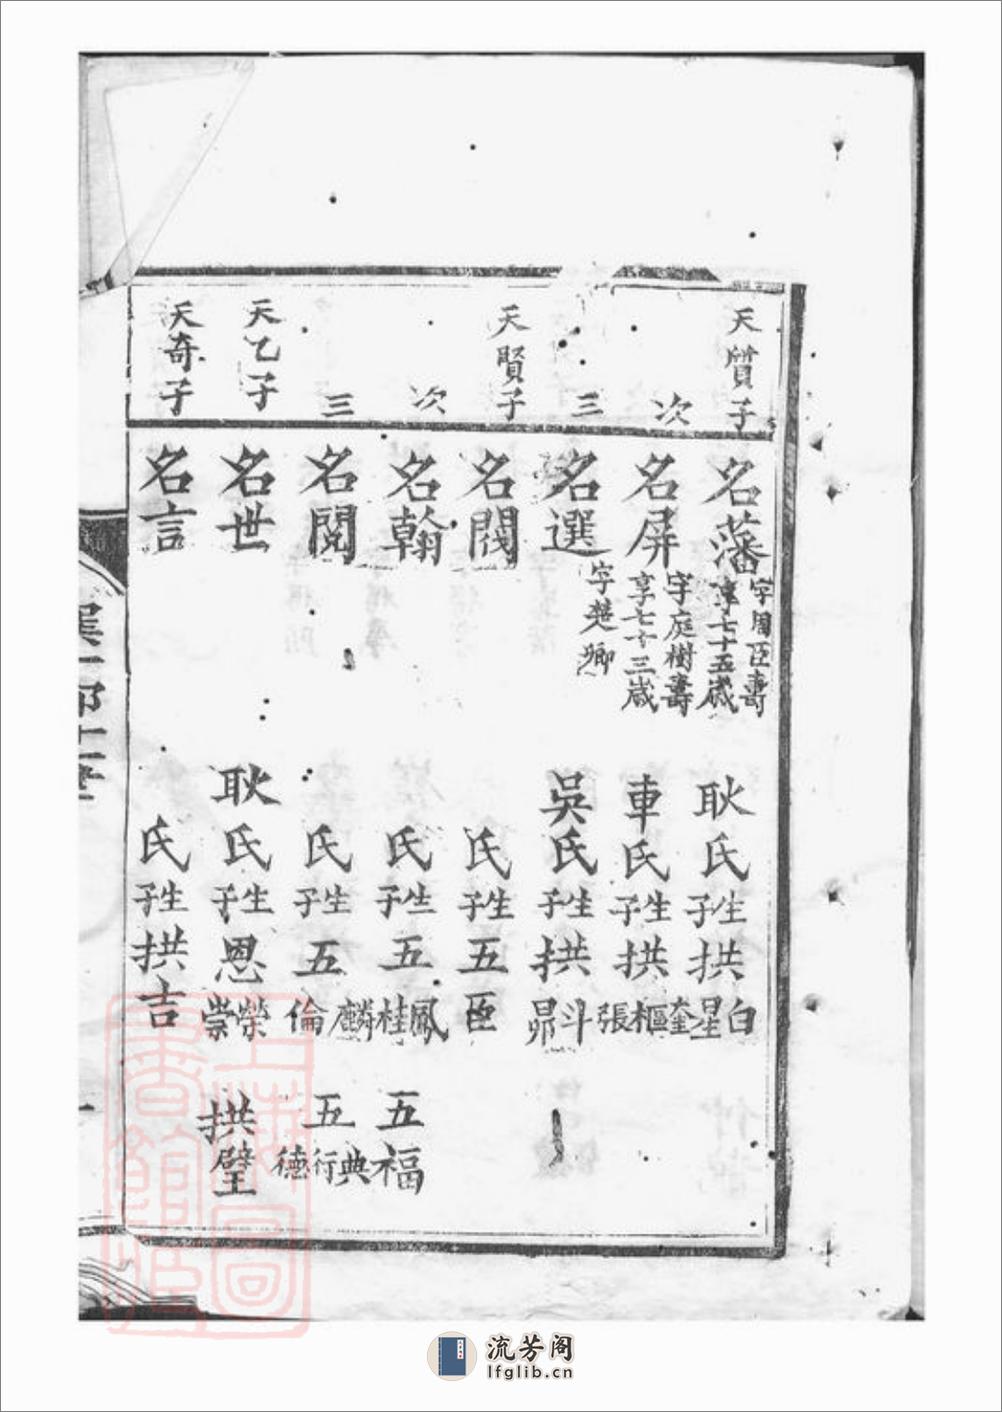 天質子 名藩 字周臣壽享七十五歲 耿氏生子拱白星
次 名屏 字庭樹壽享七十三歲 車氏生子拱奎樞張
三 名選 字楚卿 吳氏生子拱斗昴
天賢子 名閥 氏生子五臣
次 名翰 氏生子五鳳桂 五福
三 名閱 氏生子五麟倫 五典行德
天乙子 名世 耿氏生子恩榮崇 拱璧
天奇子 名言 氏生子拱吉
上海圖書館藏
流芳阁
lfglib.cn